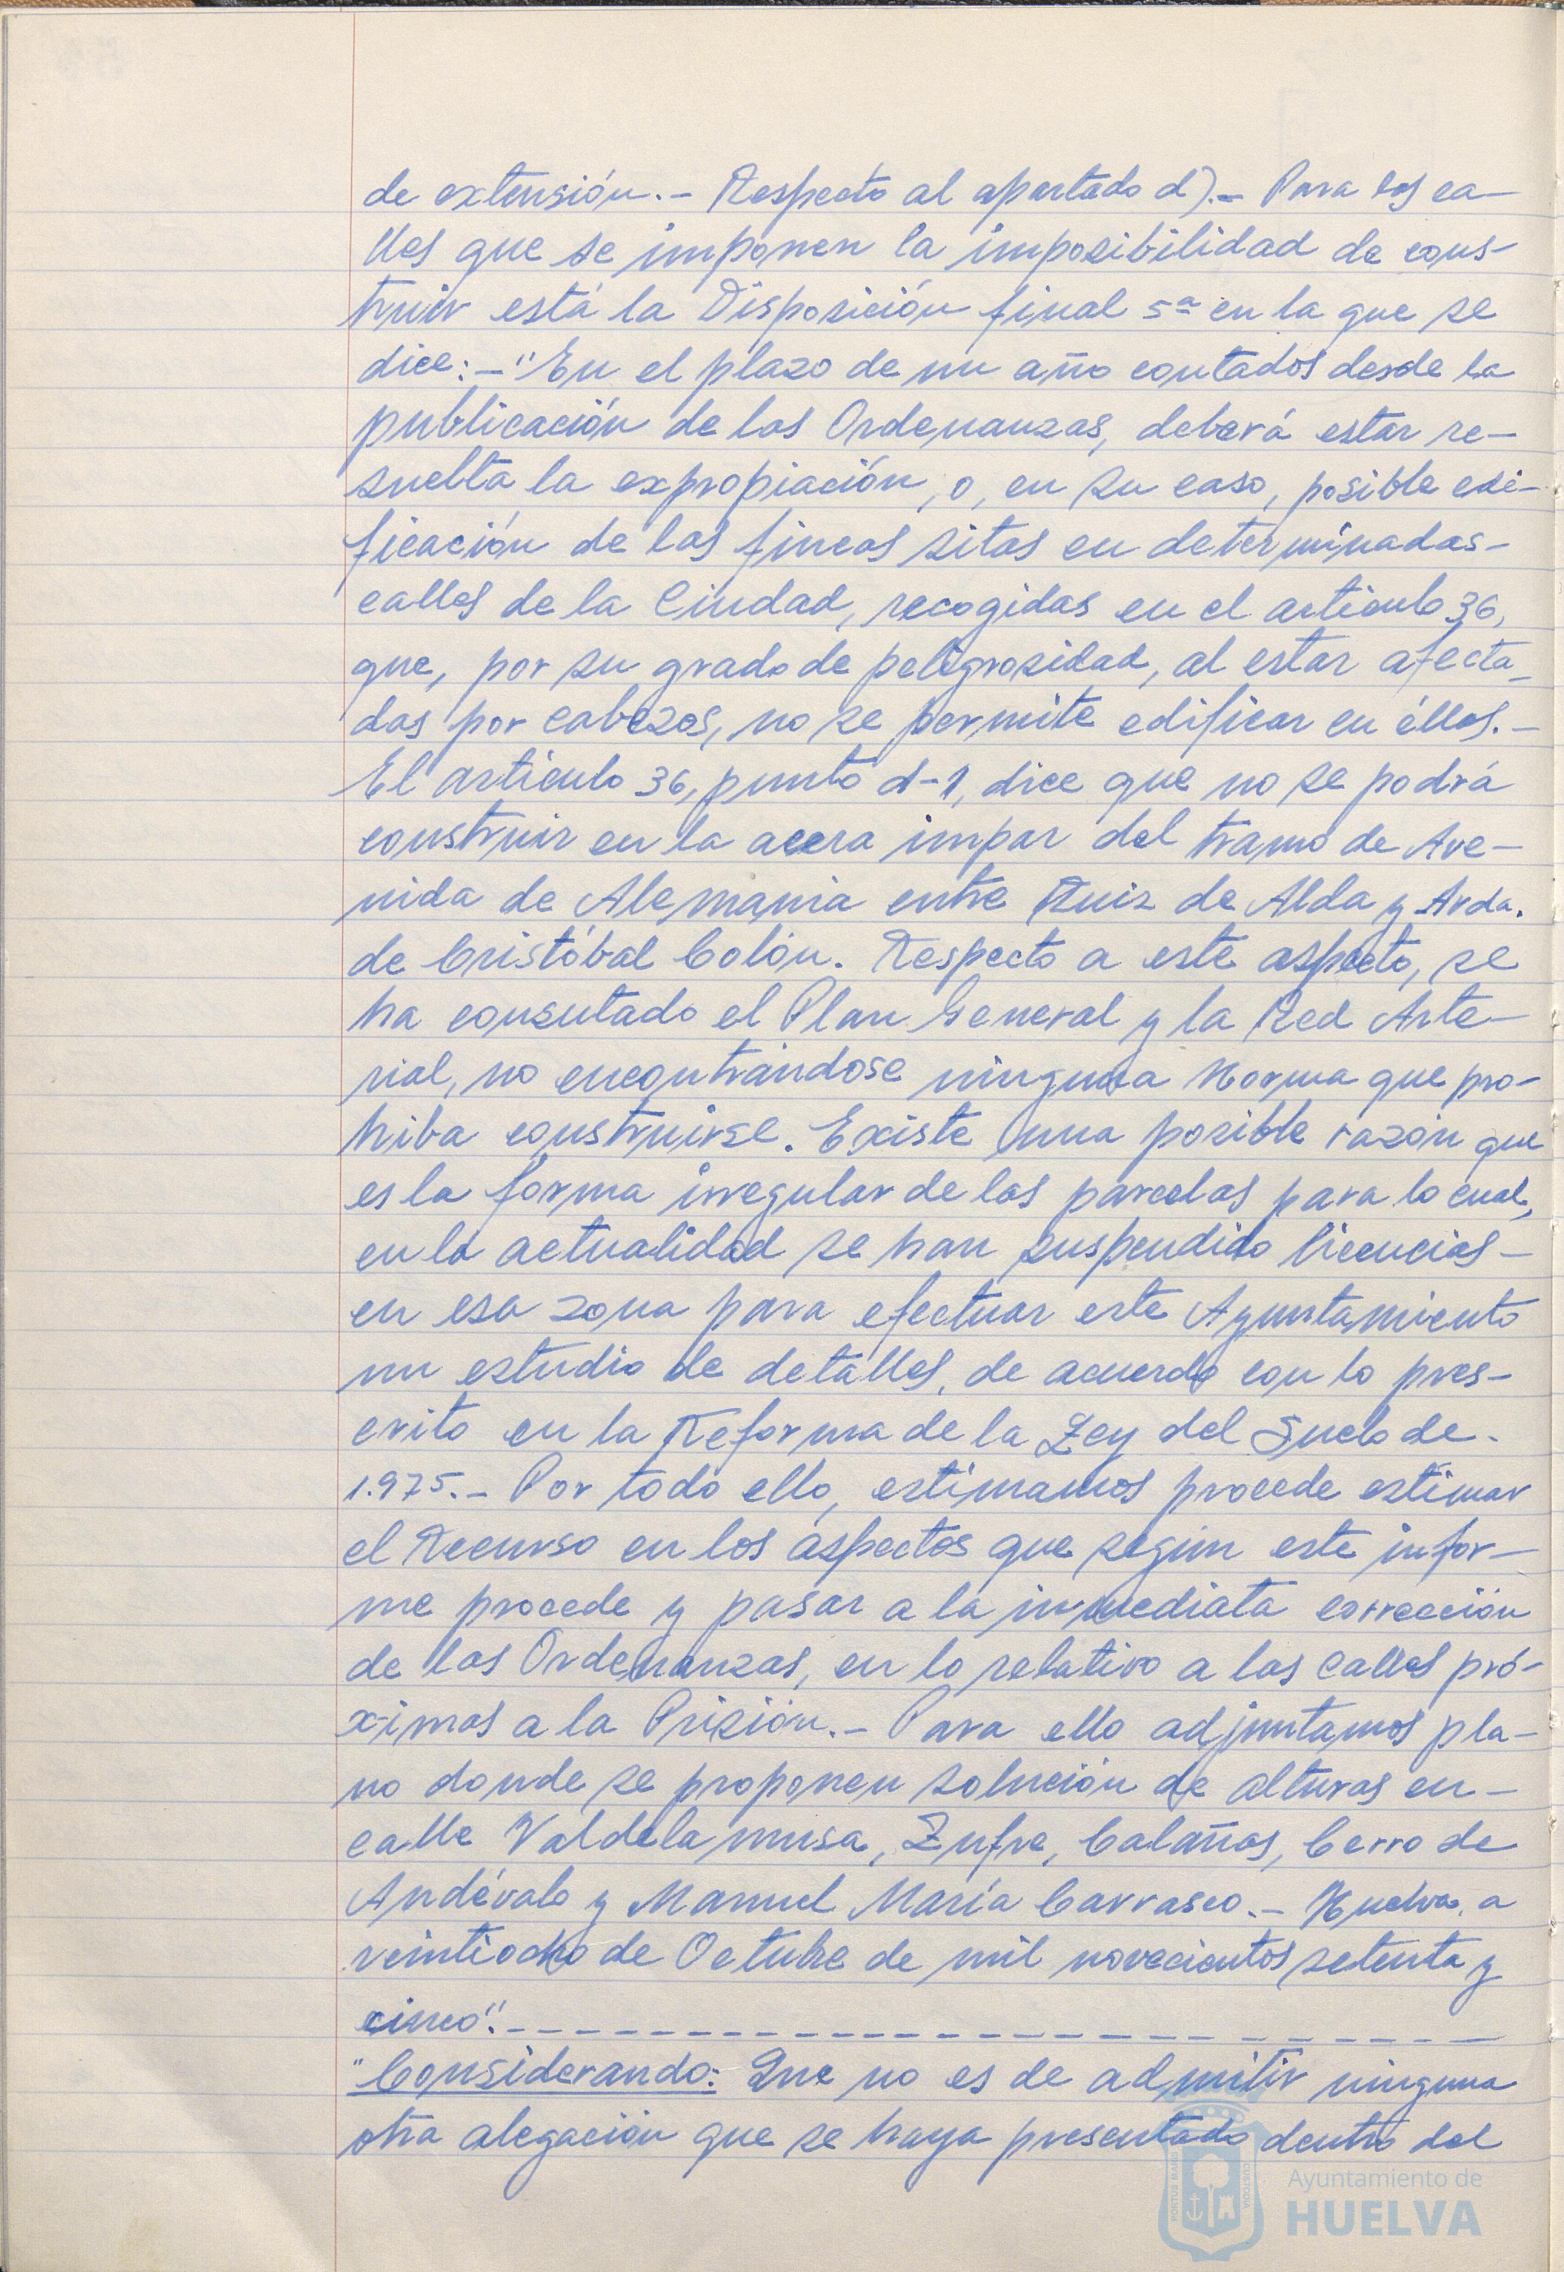 de extensión.- Respecto al apartado d).- Para las ca-
lles que se imponen la imposibilidad de cons-
truir está la Disposición final 5ª en la que se
dice:-"En el plazo de un año contados desde la
publicación de las Ordenanzas, deberá estar re-
suelta la expropiación, o, en su caso, posible edi-
ficación de las fincas sitas en determinadas-
calles de la Ciudad, recogidas en el artículo 36,
que, por su grado de peligrosidad, al estar afecta-
das por cabezos, no se permite edificar en éllas.-
El artículo 36, punto d-1, dice que no se podrá
construir en la acera impar del tramo de Ave-
nida de Alemania entre Ruiz de Alda y Avda.
de Cristóbal Colón. Respecto a este aspecto, se
ha consutado el Plan General y la Red Arte-
rial, no encontrándose ninguna Norma que pro-
hiba construirse. Existe una posible razón que
es la forma irregular de las parcelas para lo cual,
en la actualidad se han suspendido licencias-
en esa zona para efectuar este Ayuntamiento
un estudio de detalles, de acuerdo con lo pres-
crito en la Reforma de la Ley del Suelo de-
1.975.- Por todo ello, estimamos procede estimar
el Recurso en los aspectos que según este infor-
me procede y pasar a la inmediata corrección
de las Ordenanzas, en lo relativo a las calles pró-
ximas a la Prisión.- Para ello adjuntamos pla-
no donde se proponen solución de alturas en-
calle Valdelamusa, Zufre, Calañas, Cerro de
Andévalo y Manuel María Carrasco.- Huelva, a
veintiocho de Octubre de mil novecientos setenta y
cinco".
"Considerando: Que no es de admitir ninguna
otra alegación que se haya presentado dentro del
PORTUS MARIS CUSTODIA
Ayuntamiento de
HUELVA